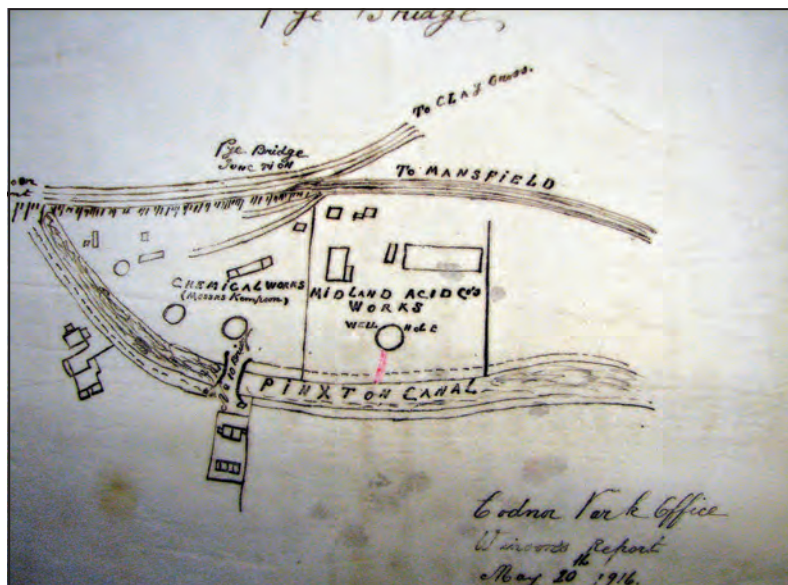 Pye Bridge
To CLAY CROSS.
Pye Bridge
Junction
To MANSFIELD
CHEMICAL WORKS
(Messrs Kempson)
MIDLAND ACID Co's
WORKS
WELL Hole
PINXTON CANAL
Codnor Park Office
Report
May 20th 1916.